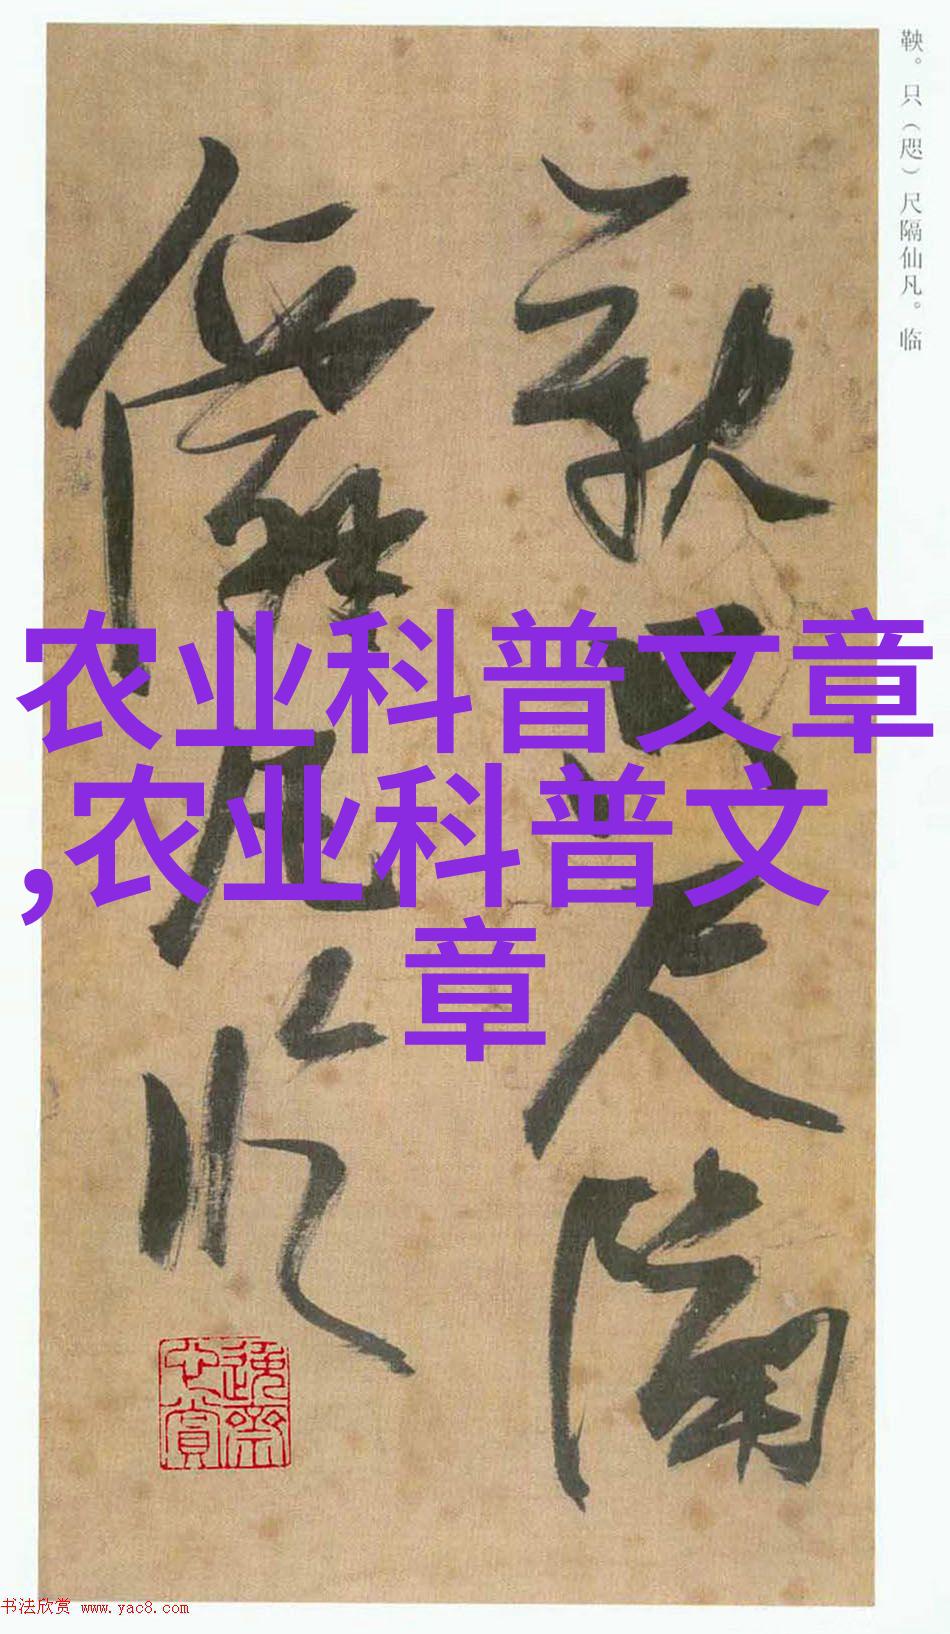 鞅。只（咫）尺隔仙凡。临
鞅只尺隔
僊凡临
农业科普文章
,农业科普文
章
书法欣赏 www.yac8.com